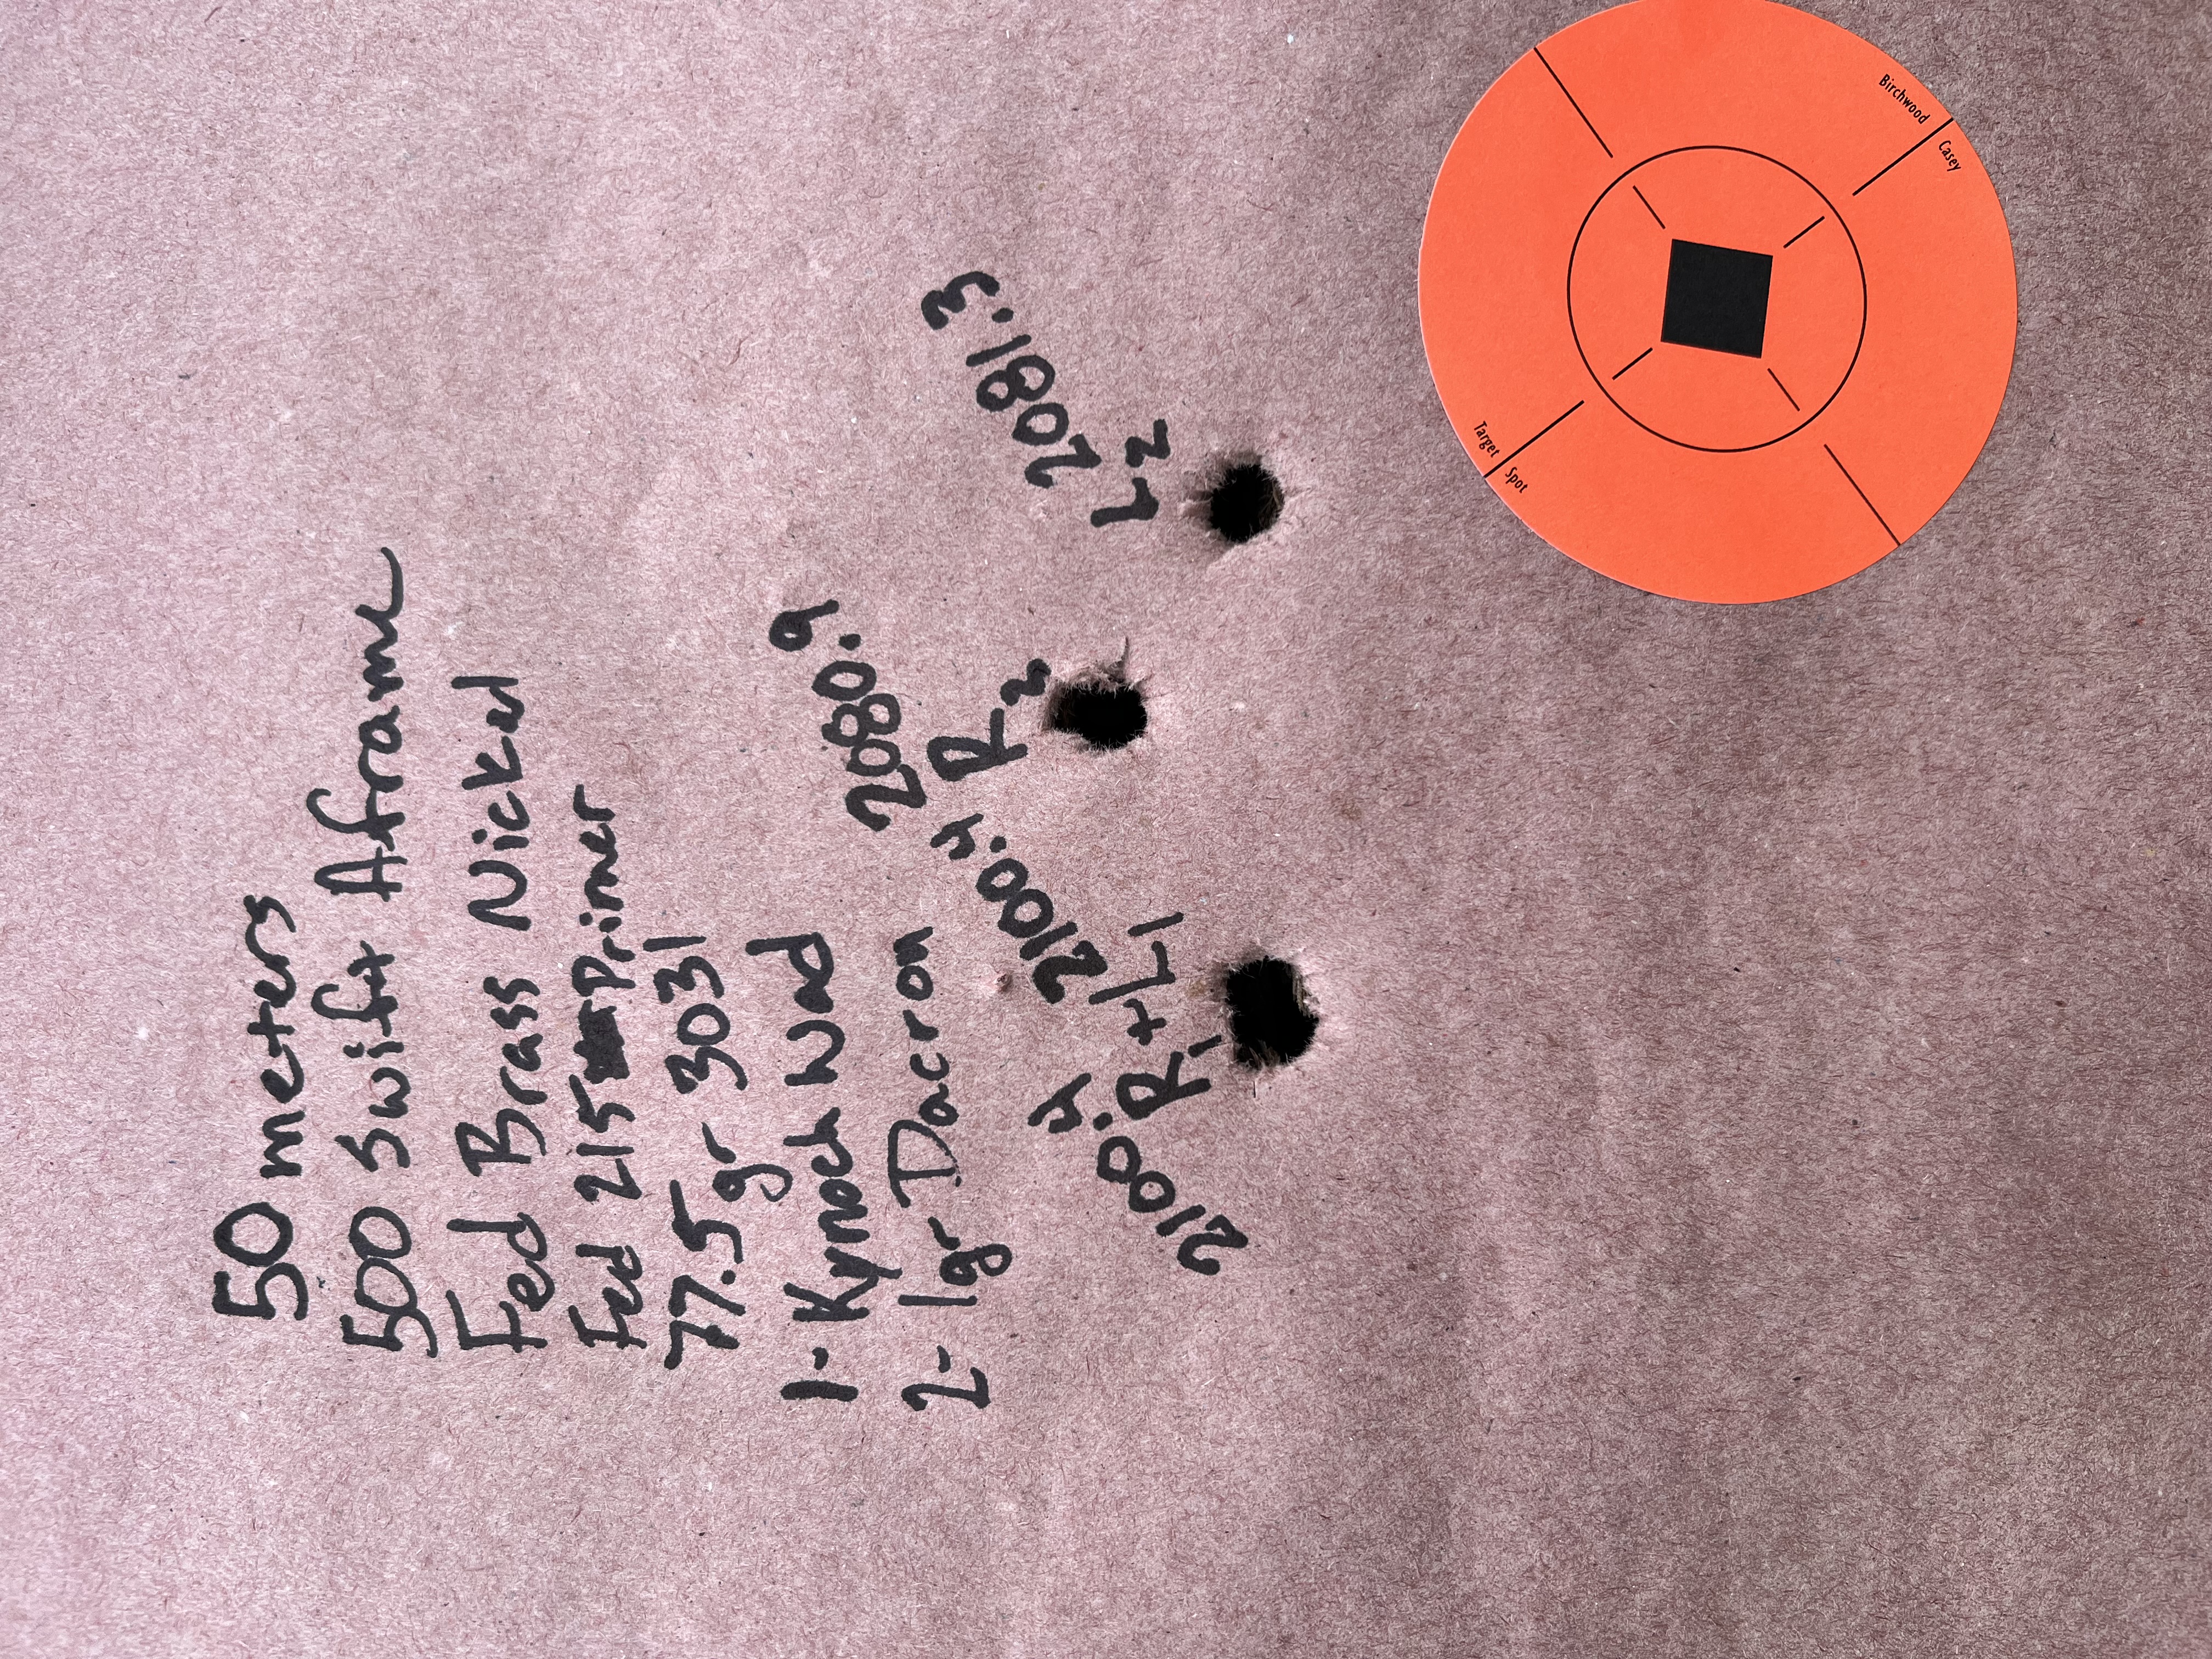 50 meters
500 Swift Aframe
Fed Brass Nickel
Fed 215 primer
77.5 gr 3031
1- Kynoch Wad
2- 1gr Dacron
2080.9
R2
2081.3
L2
2100.4
2100.4
R1+L1
Birchwood Casey
Target Spot